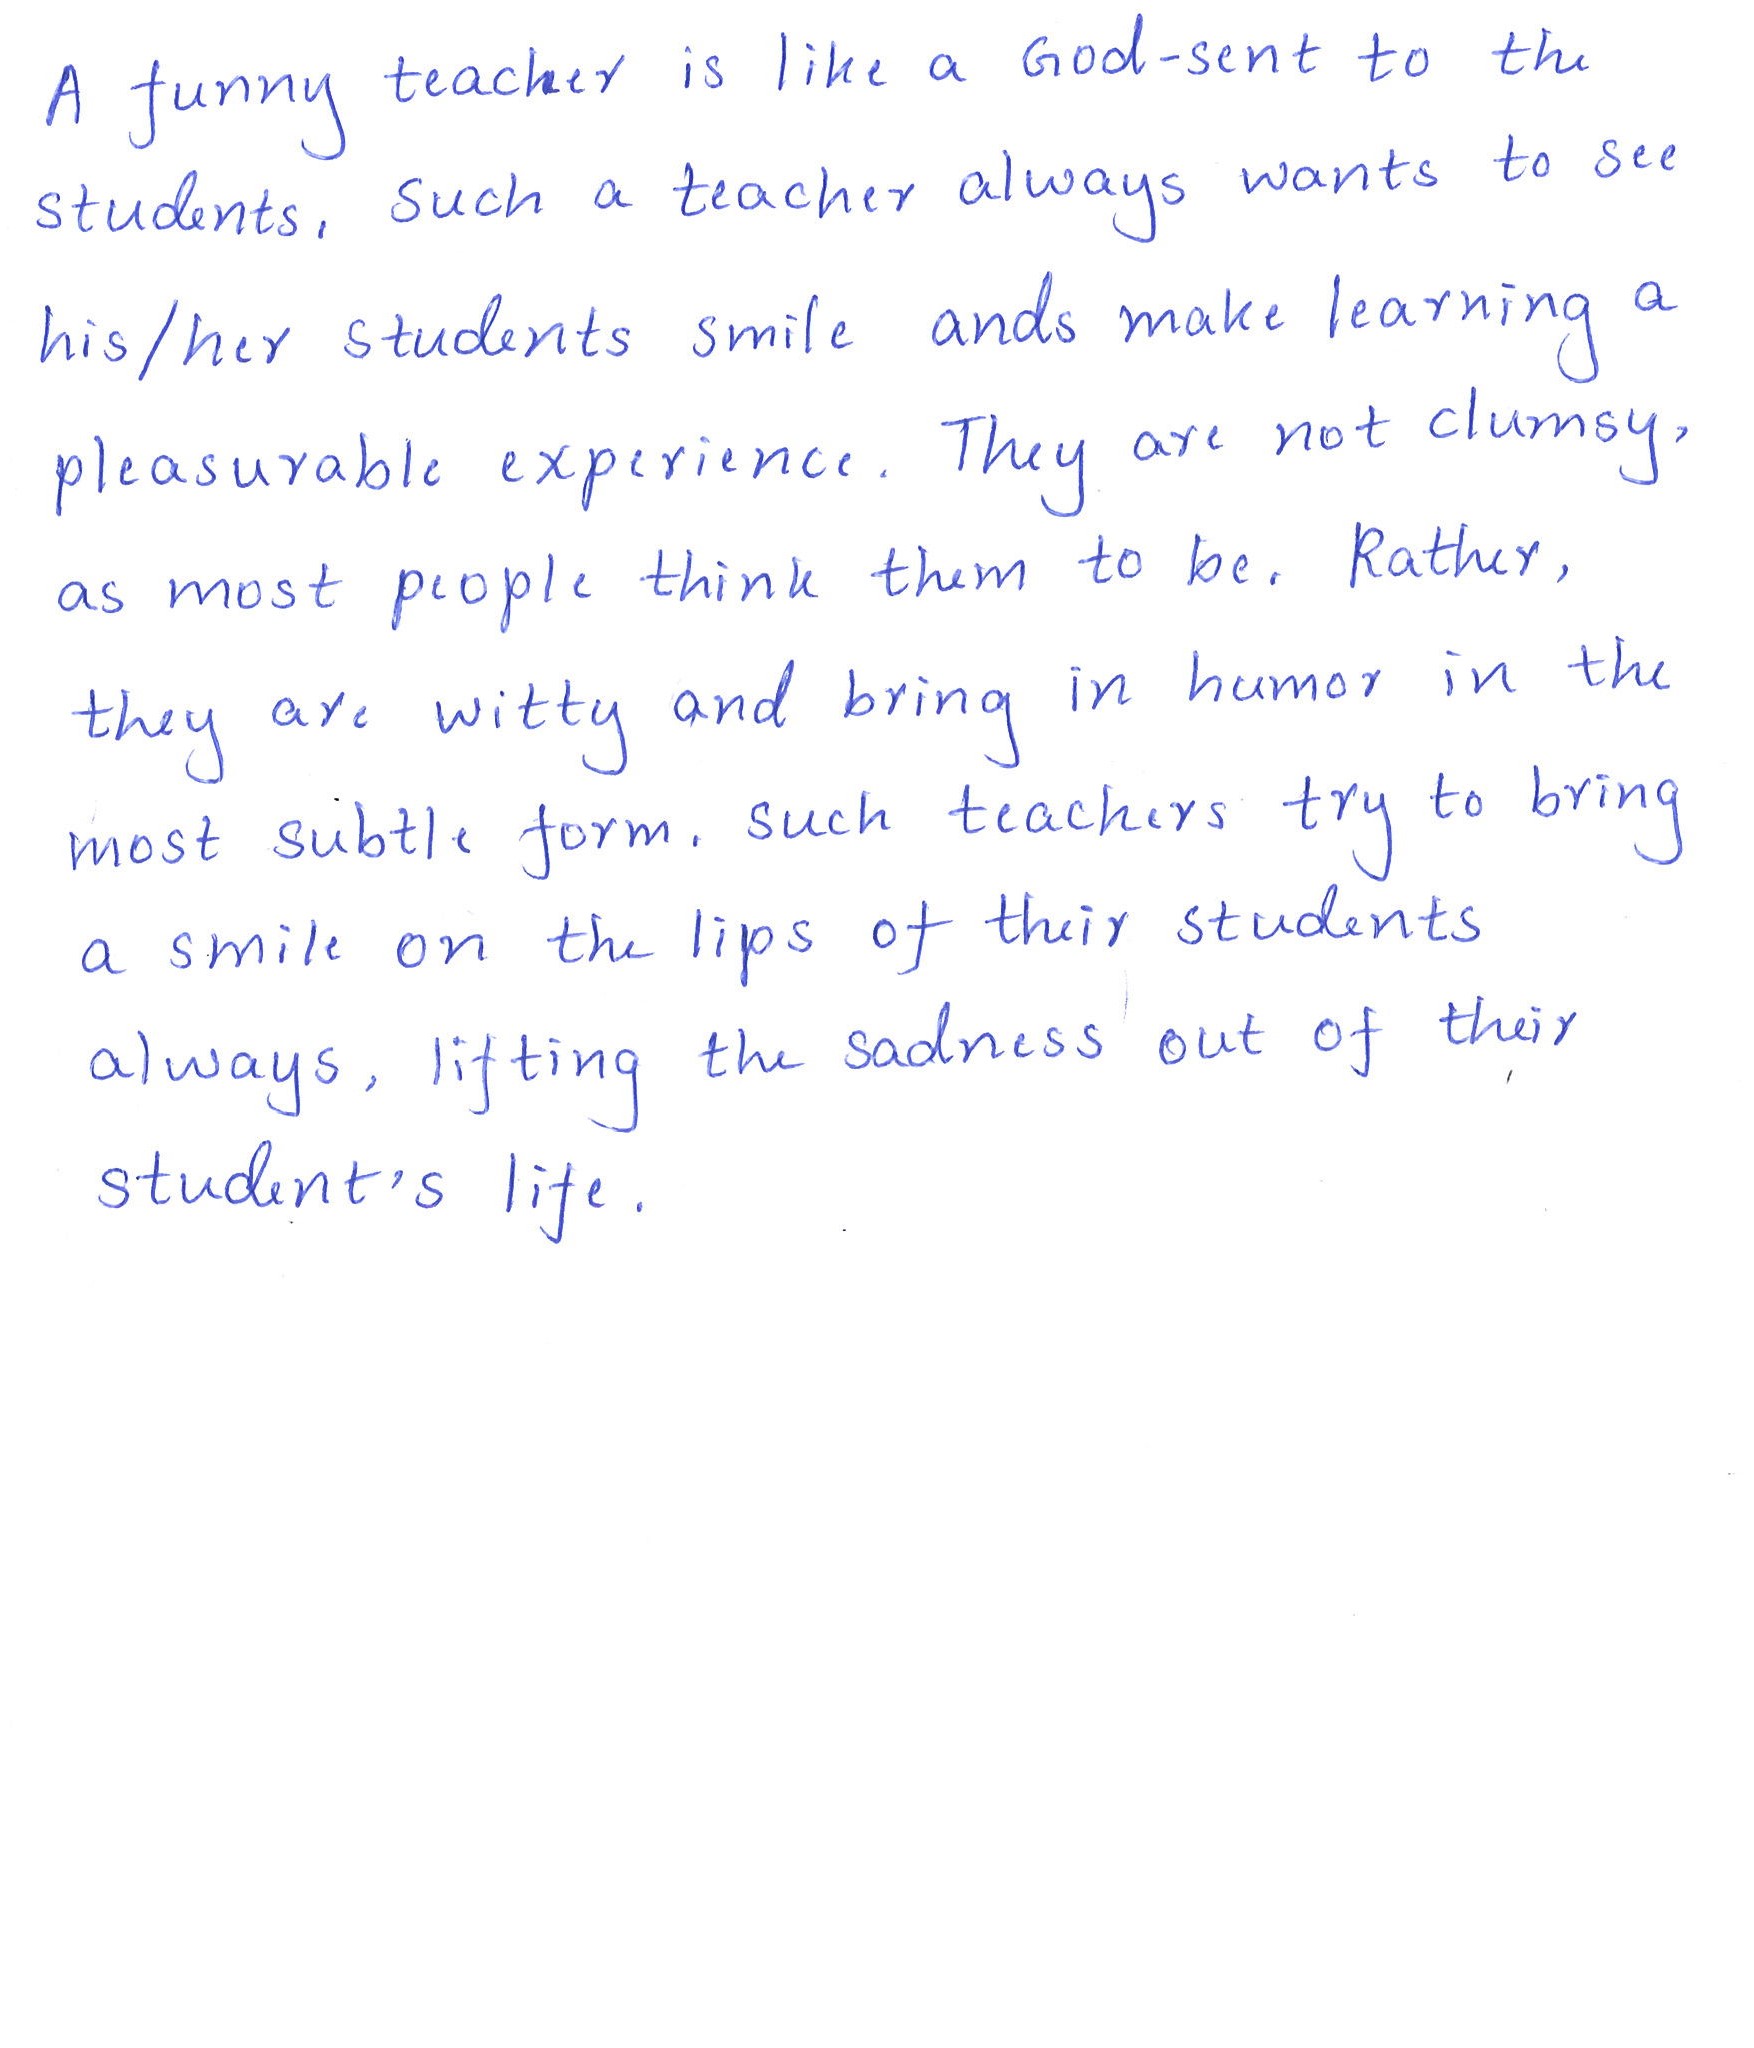 A funny teacher is like a God-sent to the
students. Such a teacher always wants to see
his/her students smile ands make learning a
pleasurable experience. They are not clumsy,
as most people think them to be. Rather,
they are witty and bring in humor in the
most subtle form. Such teachers try to bring
a smile on the lips of their students
always, lifting the sadness out of their
student's life.